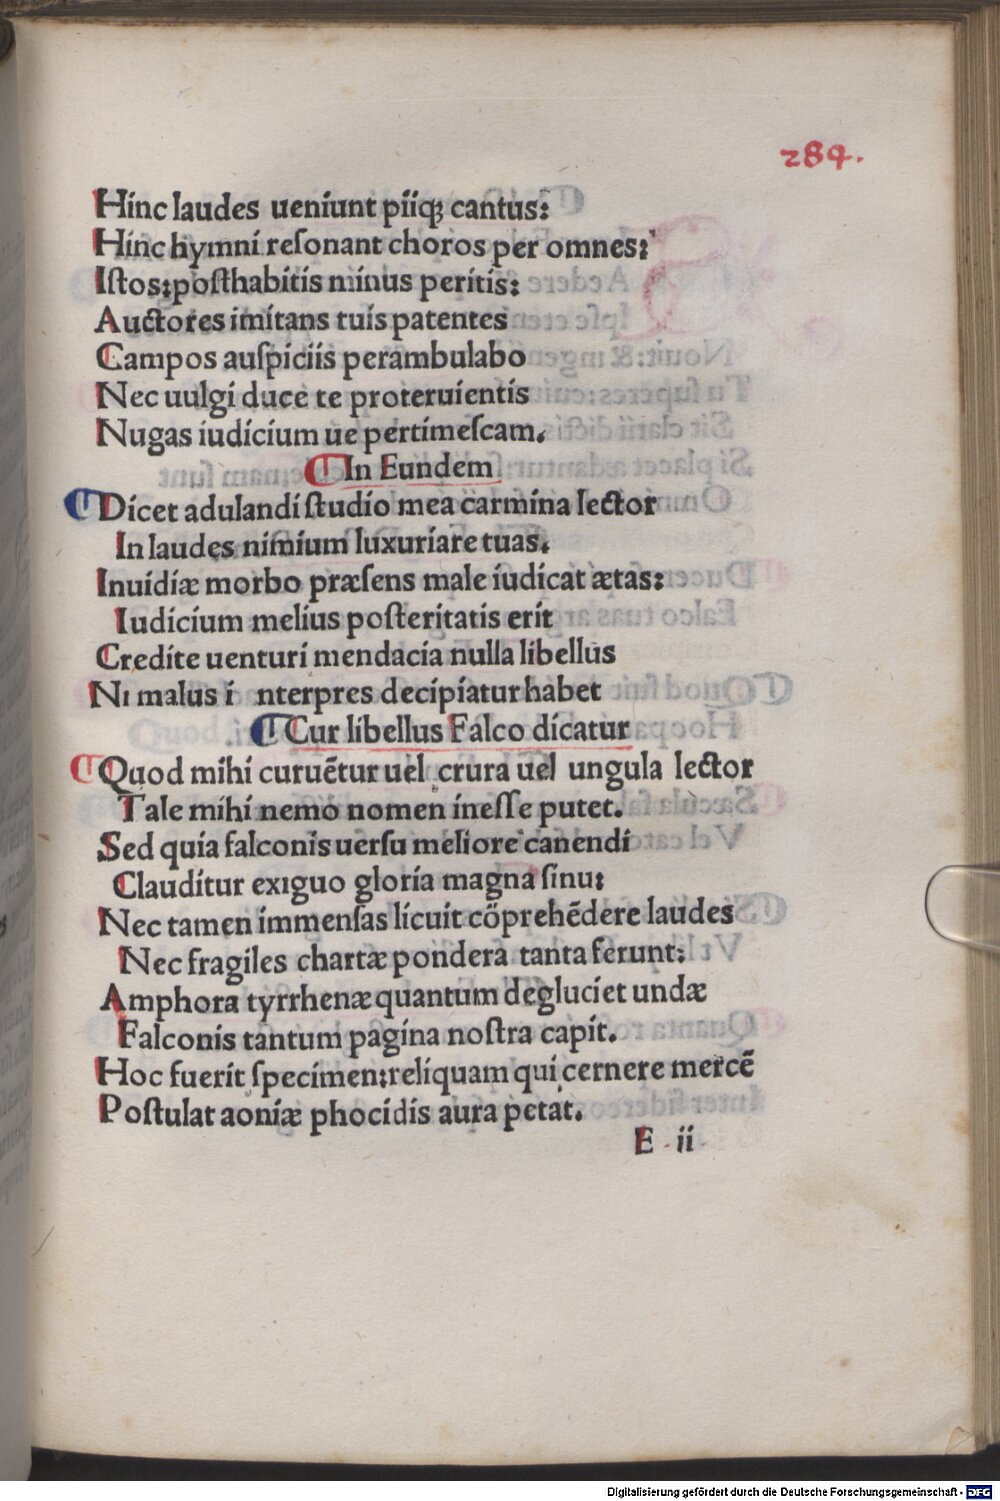 284.
Hinc laudes ueniunt piiqꝫ cantus:
Hinc hymni reſonant choros per omnes:
Iſtos:poſthabitis minus peritis:
Auctores imitans tuis patentes
Campos auſpiciis perambulabo
Nec uulgi duce te proteruientis
Nugas iudicium ue pertimeſcam.
¶ In Eundem
¶ Dicet adulandi ſtudio mea carmina lector
In laudes nimium luxuriare tuas.
Inuidiæ morbo præſens male iudicat ætas:
Iudicium melius poſteritatis erit
Credite uenturi mendacia nulla libellus
Ni malus i nterpres decipiatur habet
¶ Cur libellus Falco dicatur
¶ Quod mihi curuētur uel crura uel ungula lector
Tale mihi nemo nomen ineſſe putet.
Sed quia falconis uerſu meliore canendi
Clauditur exiguo gloria magna ſinu:
Nec tamen immenſas licuit cōprehēdere laudes
Nec fragiles chartæ pondera tanta ferunt:
Amphora tyrrhenæ quantum degluciet undæ
Falconis tantum pagina noſtra capit.
Hoc fuerit ſpecimen:reliquam qui cernere mercē
Poſtulat aoniæ phocidis aura petat.
E ii
Digitalisierung gefördert durch die Deutsche Forschungsgemeinschaft - DFG